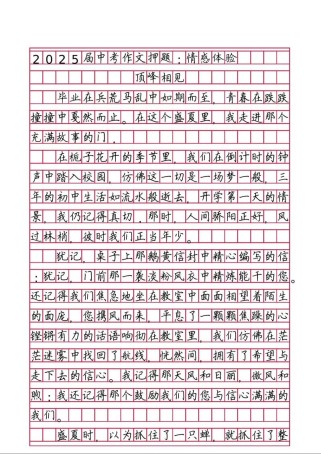 2025届中考作文押题：情感体验
顶峰相见
毕业在兵荒马乱中如期而至，青春在跌跌
撞撞中戛然而止。在这个盛夏里，我走进那个
充满故事的门。
在栀子花开的季节里，我们在倒计时的钟
声中踏入校园，仿佛这一切是一场梦一般，三
年的初中生活如流水般逝去，开学第一天的情
景，我仍记得真切，那时，人间骄阳正好，风
过林梢，彼时我们正当年少。
犹记，桌子上那鹅黄信封中精心编写的信
；犹记，门前那一袭淡粉风衣中精炼能干的您。
还记得我们焦急地坐在教室中面面相望着陌生
的面庞，您携风而来，平息了一颗颗焦躁的心
铿锵有力的话语响彻在教室里，我们仿佛在茫
茫迷雾中找回了航线，恍然间，拥有了希望与
走下去的信心。我记得那天风和日丽，微风和
煦；我还记得那个鼓励我们的您与信心满满的
我们。
盛夏时，以为抓住了一只蝉，就抓住了整